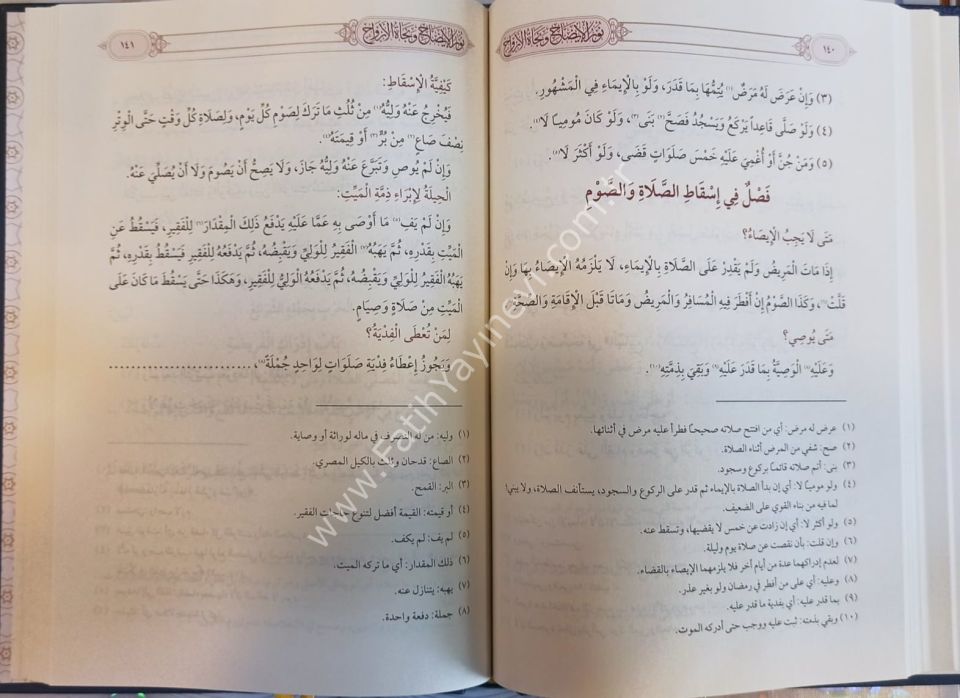 نور الإيضاح ونجاة الأرواح
١٤٠
(٣) وَإِنْ عَرَضَ لَهُ مَرَضٌ (١) يُتِمُّهَا بِمَا قَدَرَ، وَلَوْ بِالْإِيمَاءِ فِي الْمَشْهُورِ.
(٤) وَلَوْ صَلَّى قَاعِداً يَرْكَعُ وَيَسْجُدُ فَصَحَّ (٢) بَنَى (٣)، وَلَوْ كَانَ مُومِياً لَا (٤).
(٥) وَمَنْ جُنَّ أَوْ أُغْمِيَ عَلَيْهِ خَمْسَ صَلَوَاتٍ قَضَى، وَلَوْ أَكْثَرَ لَا (٥).
فَصْلٌ فِي إِسْقَاطِ الصَّلَاةِ وَالصَّوْمِ
مَتَى لَا يَجِبُ الْإِيصَاءُ؟
إِذَا مَاتَ الْمَرِيضُ وَلَمْ يَقْدِرْ عَلَى الصَّلَاةِ بِالْإِيمَاءِ، لَا يَلْزَمُهُ الْإِيصَاءُ بِهَا وَإِنْ
قَلَّتْ (٦)، وَكَذَا الصَّوْمُ إِنْ أَفْطَرَ فِيهِ الْمُسَافِرُ وَالْمَرِيضُ وَمَاتَا قَبْلَ الْإِقَامَةِ وَالصِّحَّةِ (٧).
مَتَى يُوصِي؟
وَعَلَيْهِ (٨) الْوَصِيَّةُ بِمَا قَدَرَ عَلَيْهِ (٩) وَبَقِيَ بِذِمَّتِهِ (١٠).
(١) عرض له مرض: أي من افتتح صلاته صحيحاً فطرأ عليه مرض في أثنائها.
(٢) صح: شفي من المرض أثناء الصلاة.
(٣) بنى: أتم صلاته قائماً بركوع وسجود.
(٤) ولو مومياً لا: أي إن بدأ الصلاة بالإيماء ثم قدر على الركوع والسجود، يستأنف الصلاة، ولا يبني!
لما فيه من بناء القوي على الضعيف.
(٥) ولو أكثر لا: أي إن زادت عن خمس لا يقضيها، وتسقط عنه.
(٦) وإن قلت: بأن نقصت عن صلاة يوم وليلة.
(٧) لعدم إدراكهما عدة من أيام أخر فلا يلزمهما الإيصاء بالقضاء.
(٨) وعليه: أي على من أفطر في رمضان ولو بغير عذر.
(٩) بما قدر عليه: أي بفدية ما قدر عليه.
(١٠) وبقي بذمته: ثبت عليه ووجب حتى أدركه الموت.
نور الإيضاح ونجاة الأرواح
١٤١
كَيْفِيَّةُ الْإِسْقَاطِ:
فَيُخْرِجُ عَنْهُ وَلِيُّهُ (١) مِنْ ثُلُثِ مَا تَرَكَ لِصَوْمِ كُلِّ يَوْمٍ، وَلِصَلَاةِ كُلِّ وَقْتٍ حَتَّى الْوِتْرِ
نِصْفَ صَاعٍ (٢) مِنْ بُرٍّ (٣) أَوْ قِيمَتَهُ (٤).
وَإِنْ لَمْ يُوصِ وَتَبَرَّعَ عَنْهُ وَلِيُّهُ جَازَ، وَلَا يَصِحُّ أَنْ يَصُومَ وَلَا أَنْ يُصَلِّيَ عَنْهُ.
الْحِيلَةُ لِإِبْرَاءِ ذِمَّةِ الْمَيِّتِ:
وَإِنْ لَمْ يَفِ (٥) مَا أَوْصَى بِهِ عَمَّا عَلَيْهِ يَدْفَعُ ذَلِكَ الْمِقْدَارَ (٦) لِلْفَقِيرِ، فَيَسْقُطُ عَنِ
الْمَيِّتِ بِقَدْرِهِ، ثُمَّ يَهَبُهُ (٧) الْفَقِيرُ لِلْوَلِيِّ وَيَقْبِضُهُ، ثُمَّ يَدْفَعُهُ لِلْفَقِيرِ فَيَسْقُطُ بِقَدْرِهِ، ثُمَّ
يَهَبُهُ الْفَقِيرُ لِلْوَلِيِّ وَيَقْبِضُهُ، ثُمَّ يَدْفَعُهُ الْوَلِيُّ لِلْفَقِيرِ، وَهَكَذَا حَتَّى يَسْقُطَ مَا كَانَ عَلَى
الْمَيِّتِ مِنْ صَلَاةٍ وَصِيَامٍ.
لِمَنْ تُعْطَى الْفِدْيَةُ؟
وَيَجُوزُ إِعْطَاءُ فِدْيَةِ صَلَوَاتٍ لِوَاحِدٍ جُمْلَةً (٨)، ..........................
(١) وليه: من له التصرف في ماله لوراثة أو وصاية.
(٢) الصاع: قدحان وثلث بالكيل المصري.
(٣) البر: القمح.
(٤) أو قيمته: القيمة أفضل لتنوع حاجات الفقير.
(٥) لم يف: لم يكف.
(٦) ذلك المقدار: أي ما تركه الميت.
(٧) يهبه: يتنازل عنه.
(٨) جملة: دفعة واحدة.
www.FatihYayinevi.com.tr